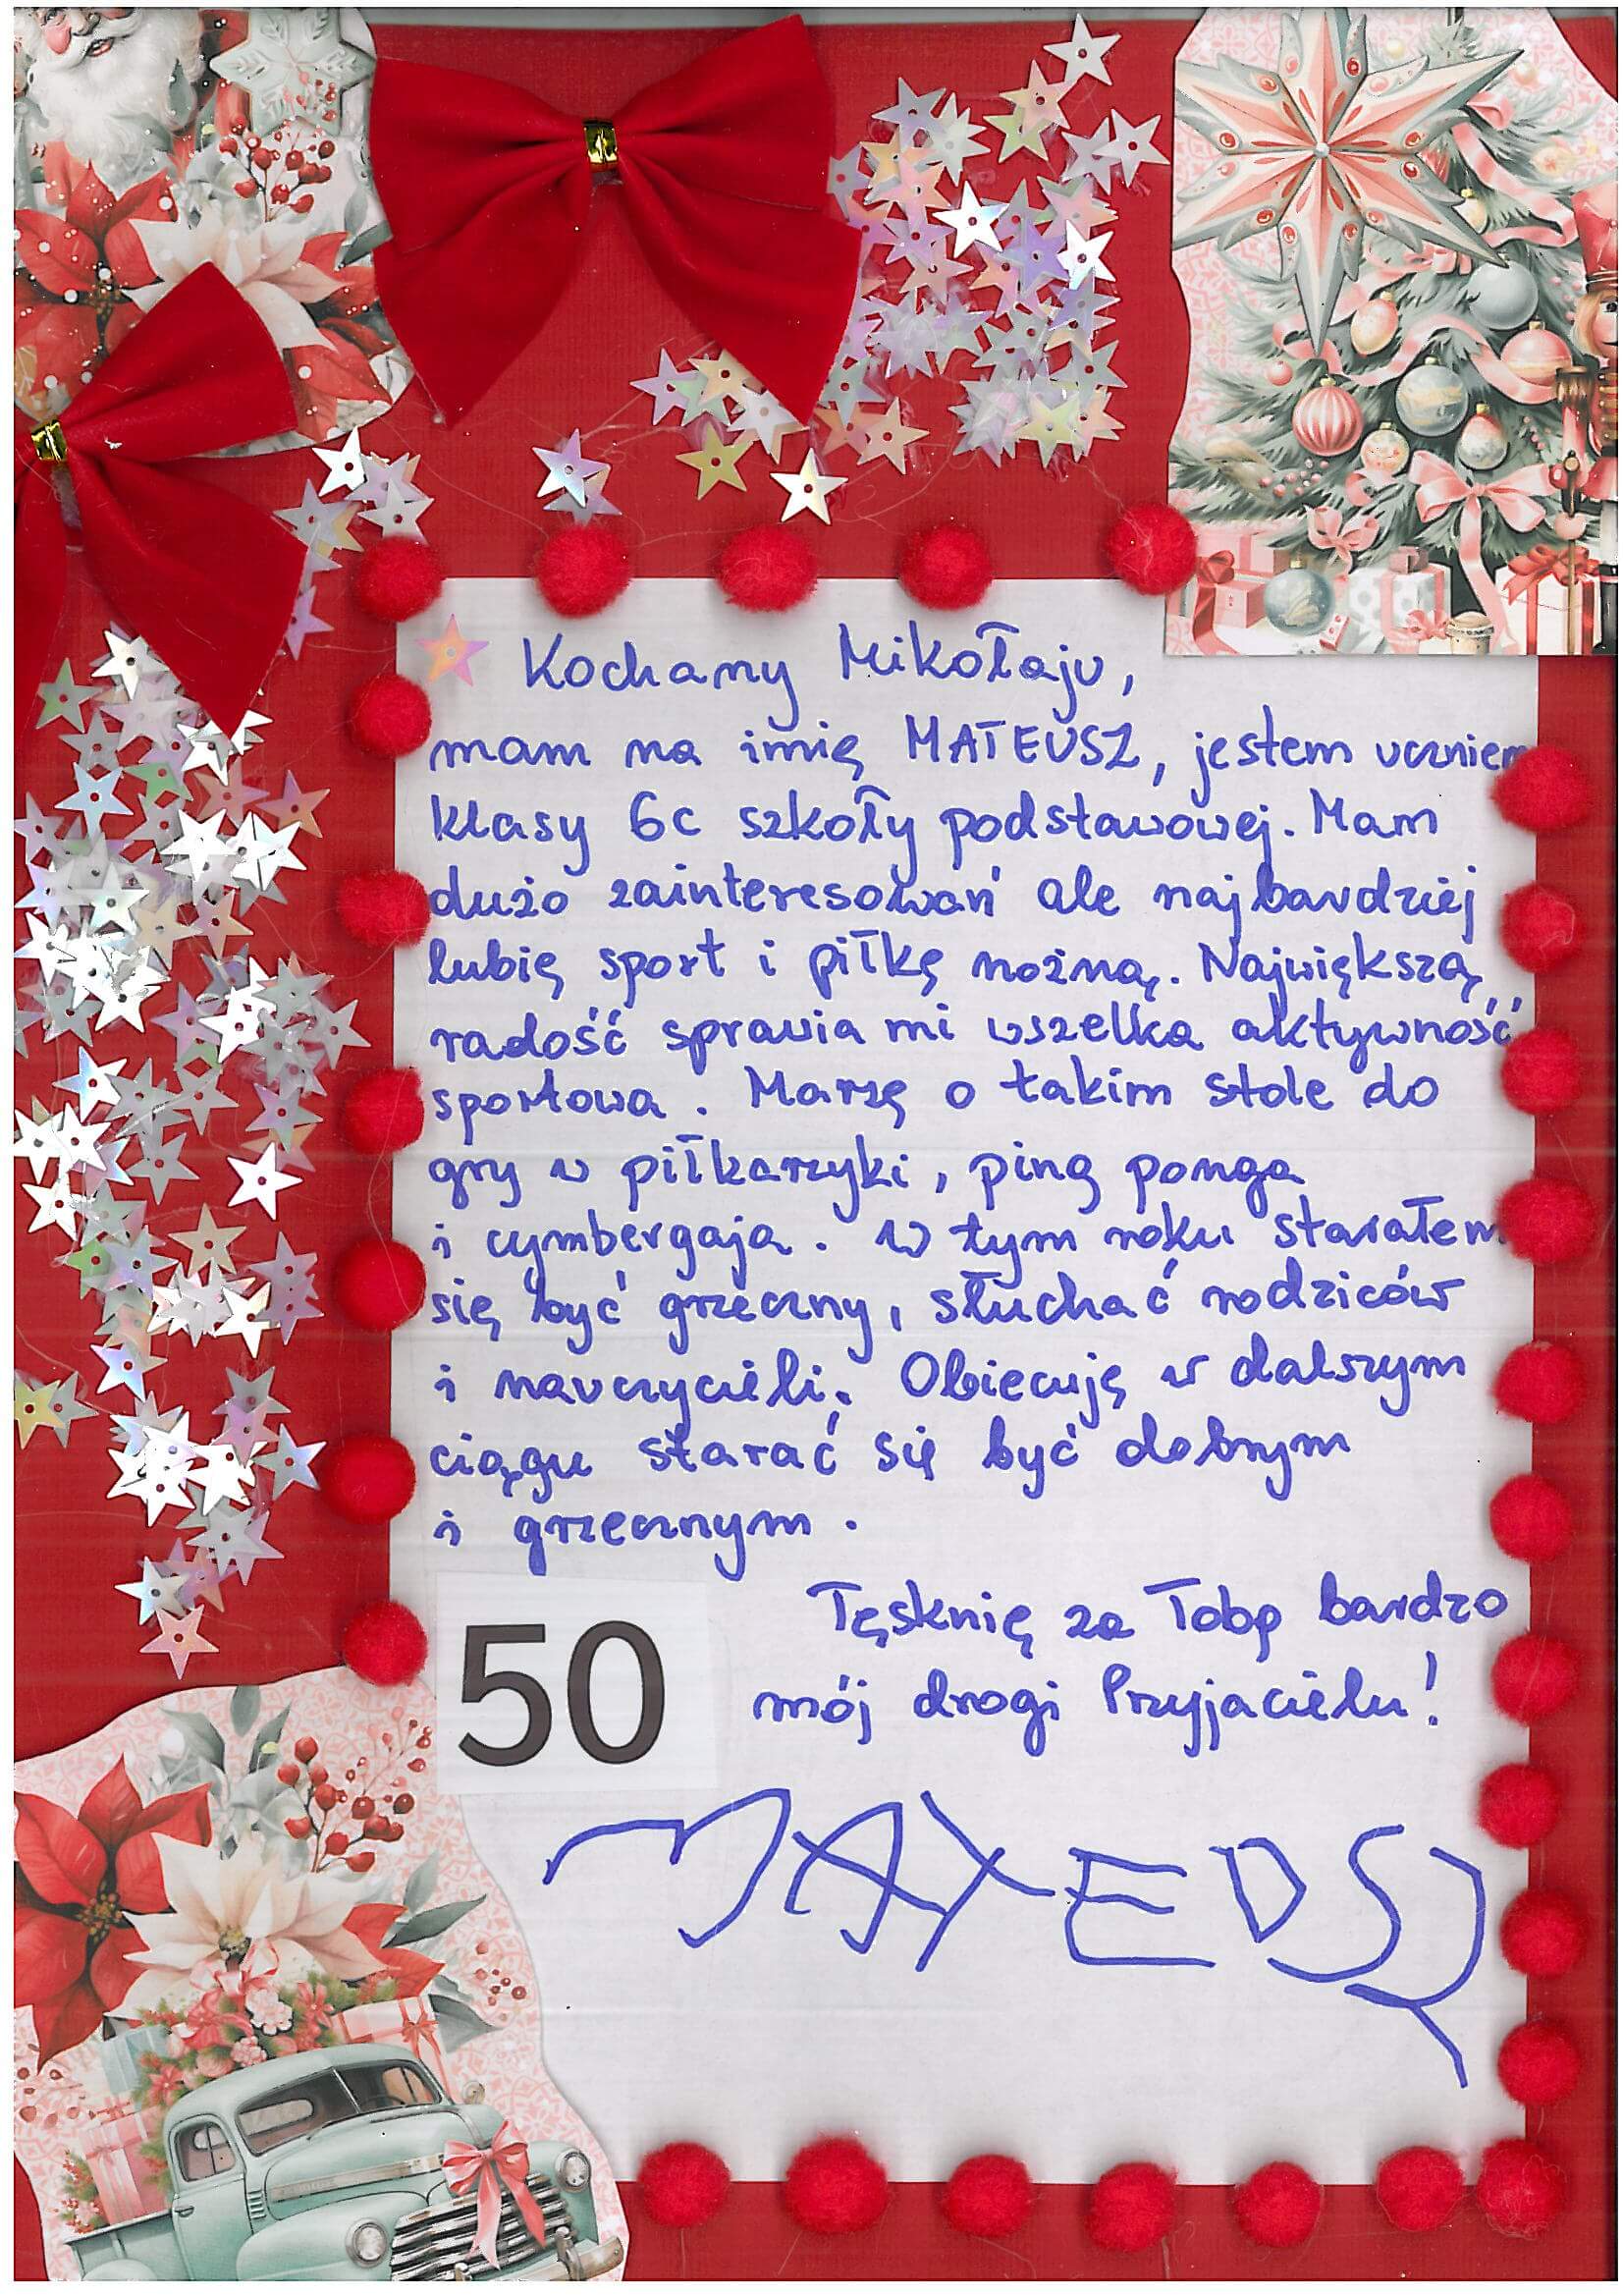 Kochany Mikołaju,
mam na imię MATEUSZ, jestem uczniem
klasy 6c szkoły podstawowej. Mam
dużo zainteresowań ale najbardziej
lubię sport i piłkę nożną. Największą
radość sprawia mi wszelka aktywność
sportowa. Marzę o takim stole do
gry w piłkarzyki, ping ponga
i cymbergaja. W tym roku starałem
się być grzeczny, słuchać rodziców
i nauczycieli. Obiecuję w dalszym
ciągu starać się być dobrym
i grzecznym.
Tęsknię za Tobą bardzo
50
mój drogi Przyjacielu!
MATEUSZ